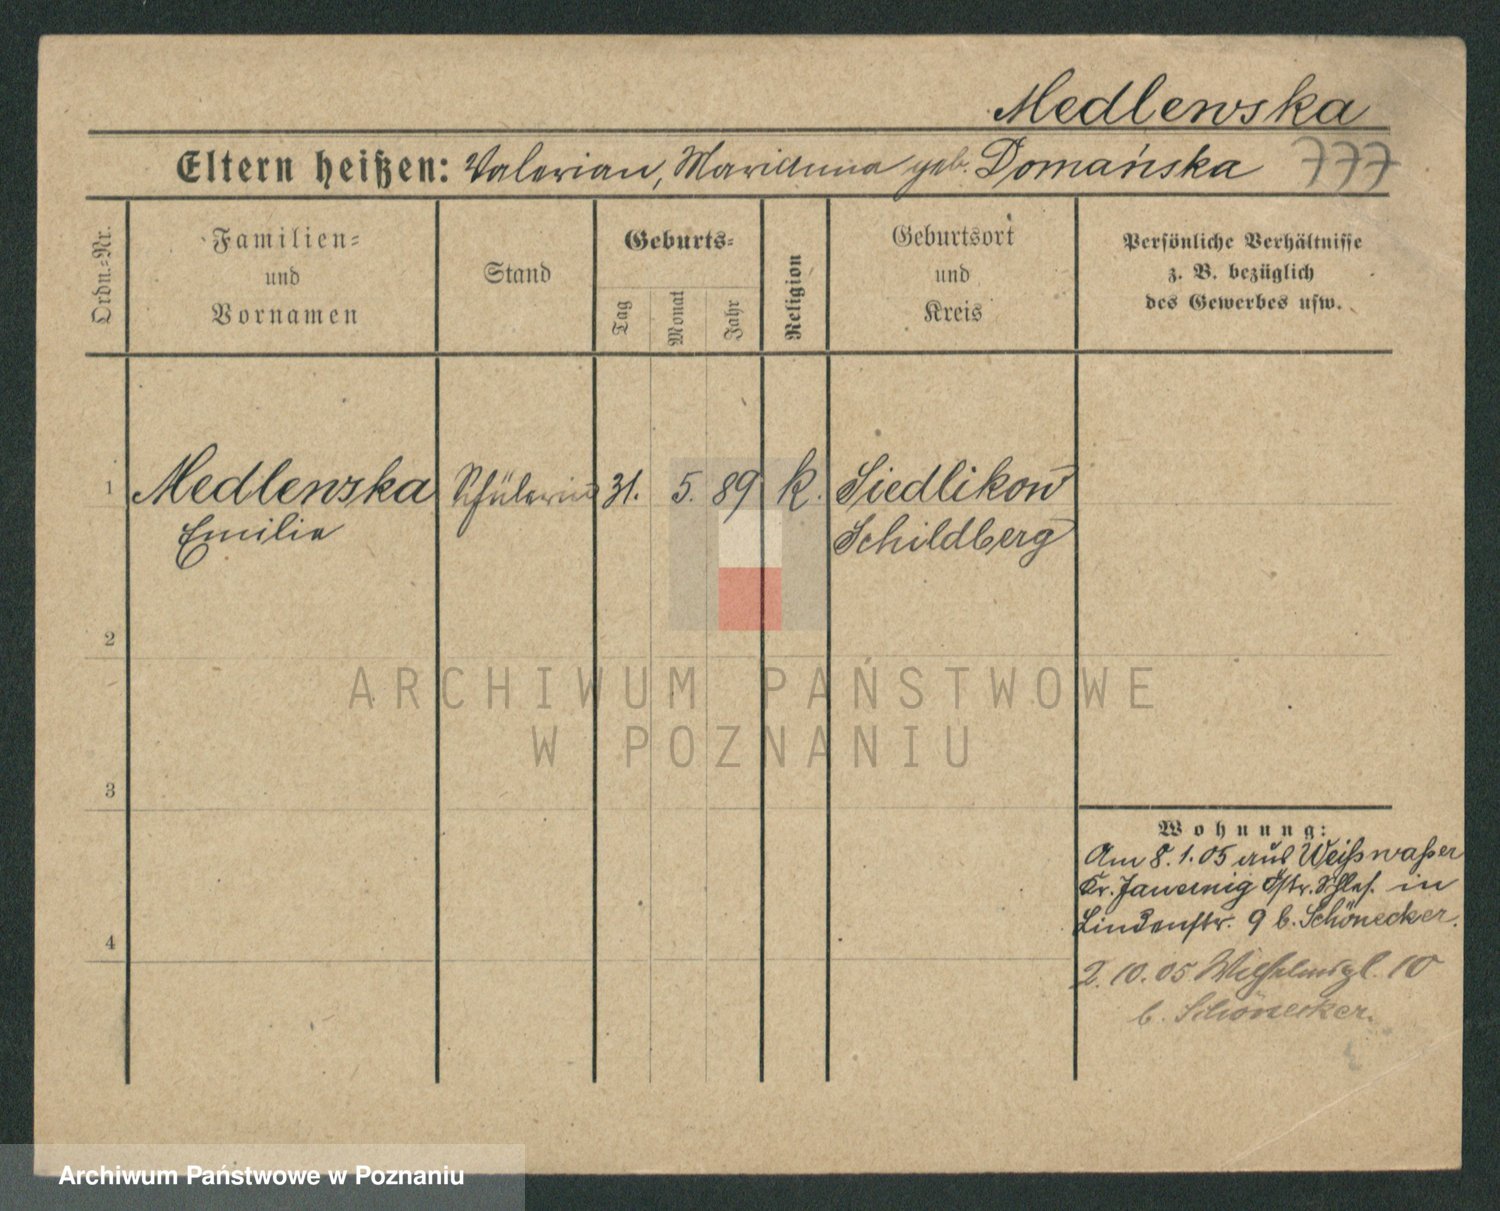 Medlewska
Eltern heißen: Valerian, Marianna geb. Domańska 777
Ordn.=Nr.
Familien=
und
Vornamen
Stand
Geburts=
Tag
Monat
Jahr
Religion
Geburtsort
und
Kreis
Persönliche Verhältnisse
z. B. bezüglich
des Gewerbes usw.
1 Medlewska Schülerin 31. 5. 89 k. Siedlikow
Emilie Schildberg
2
3
4
Wohnung:
Am 8.1.05 aus Weißwaßer
Kr. Jauernig Östr. Schles. in
Lindenstr. 9 b. Schönecker.
2.10.05 Wilhelmspl. 10
b. Schönecker.
ARCHIWUM PAŃSTWOWE
W POZNANIU
Archiwum Państwowe w Poznaniu